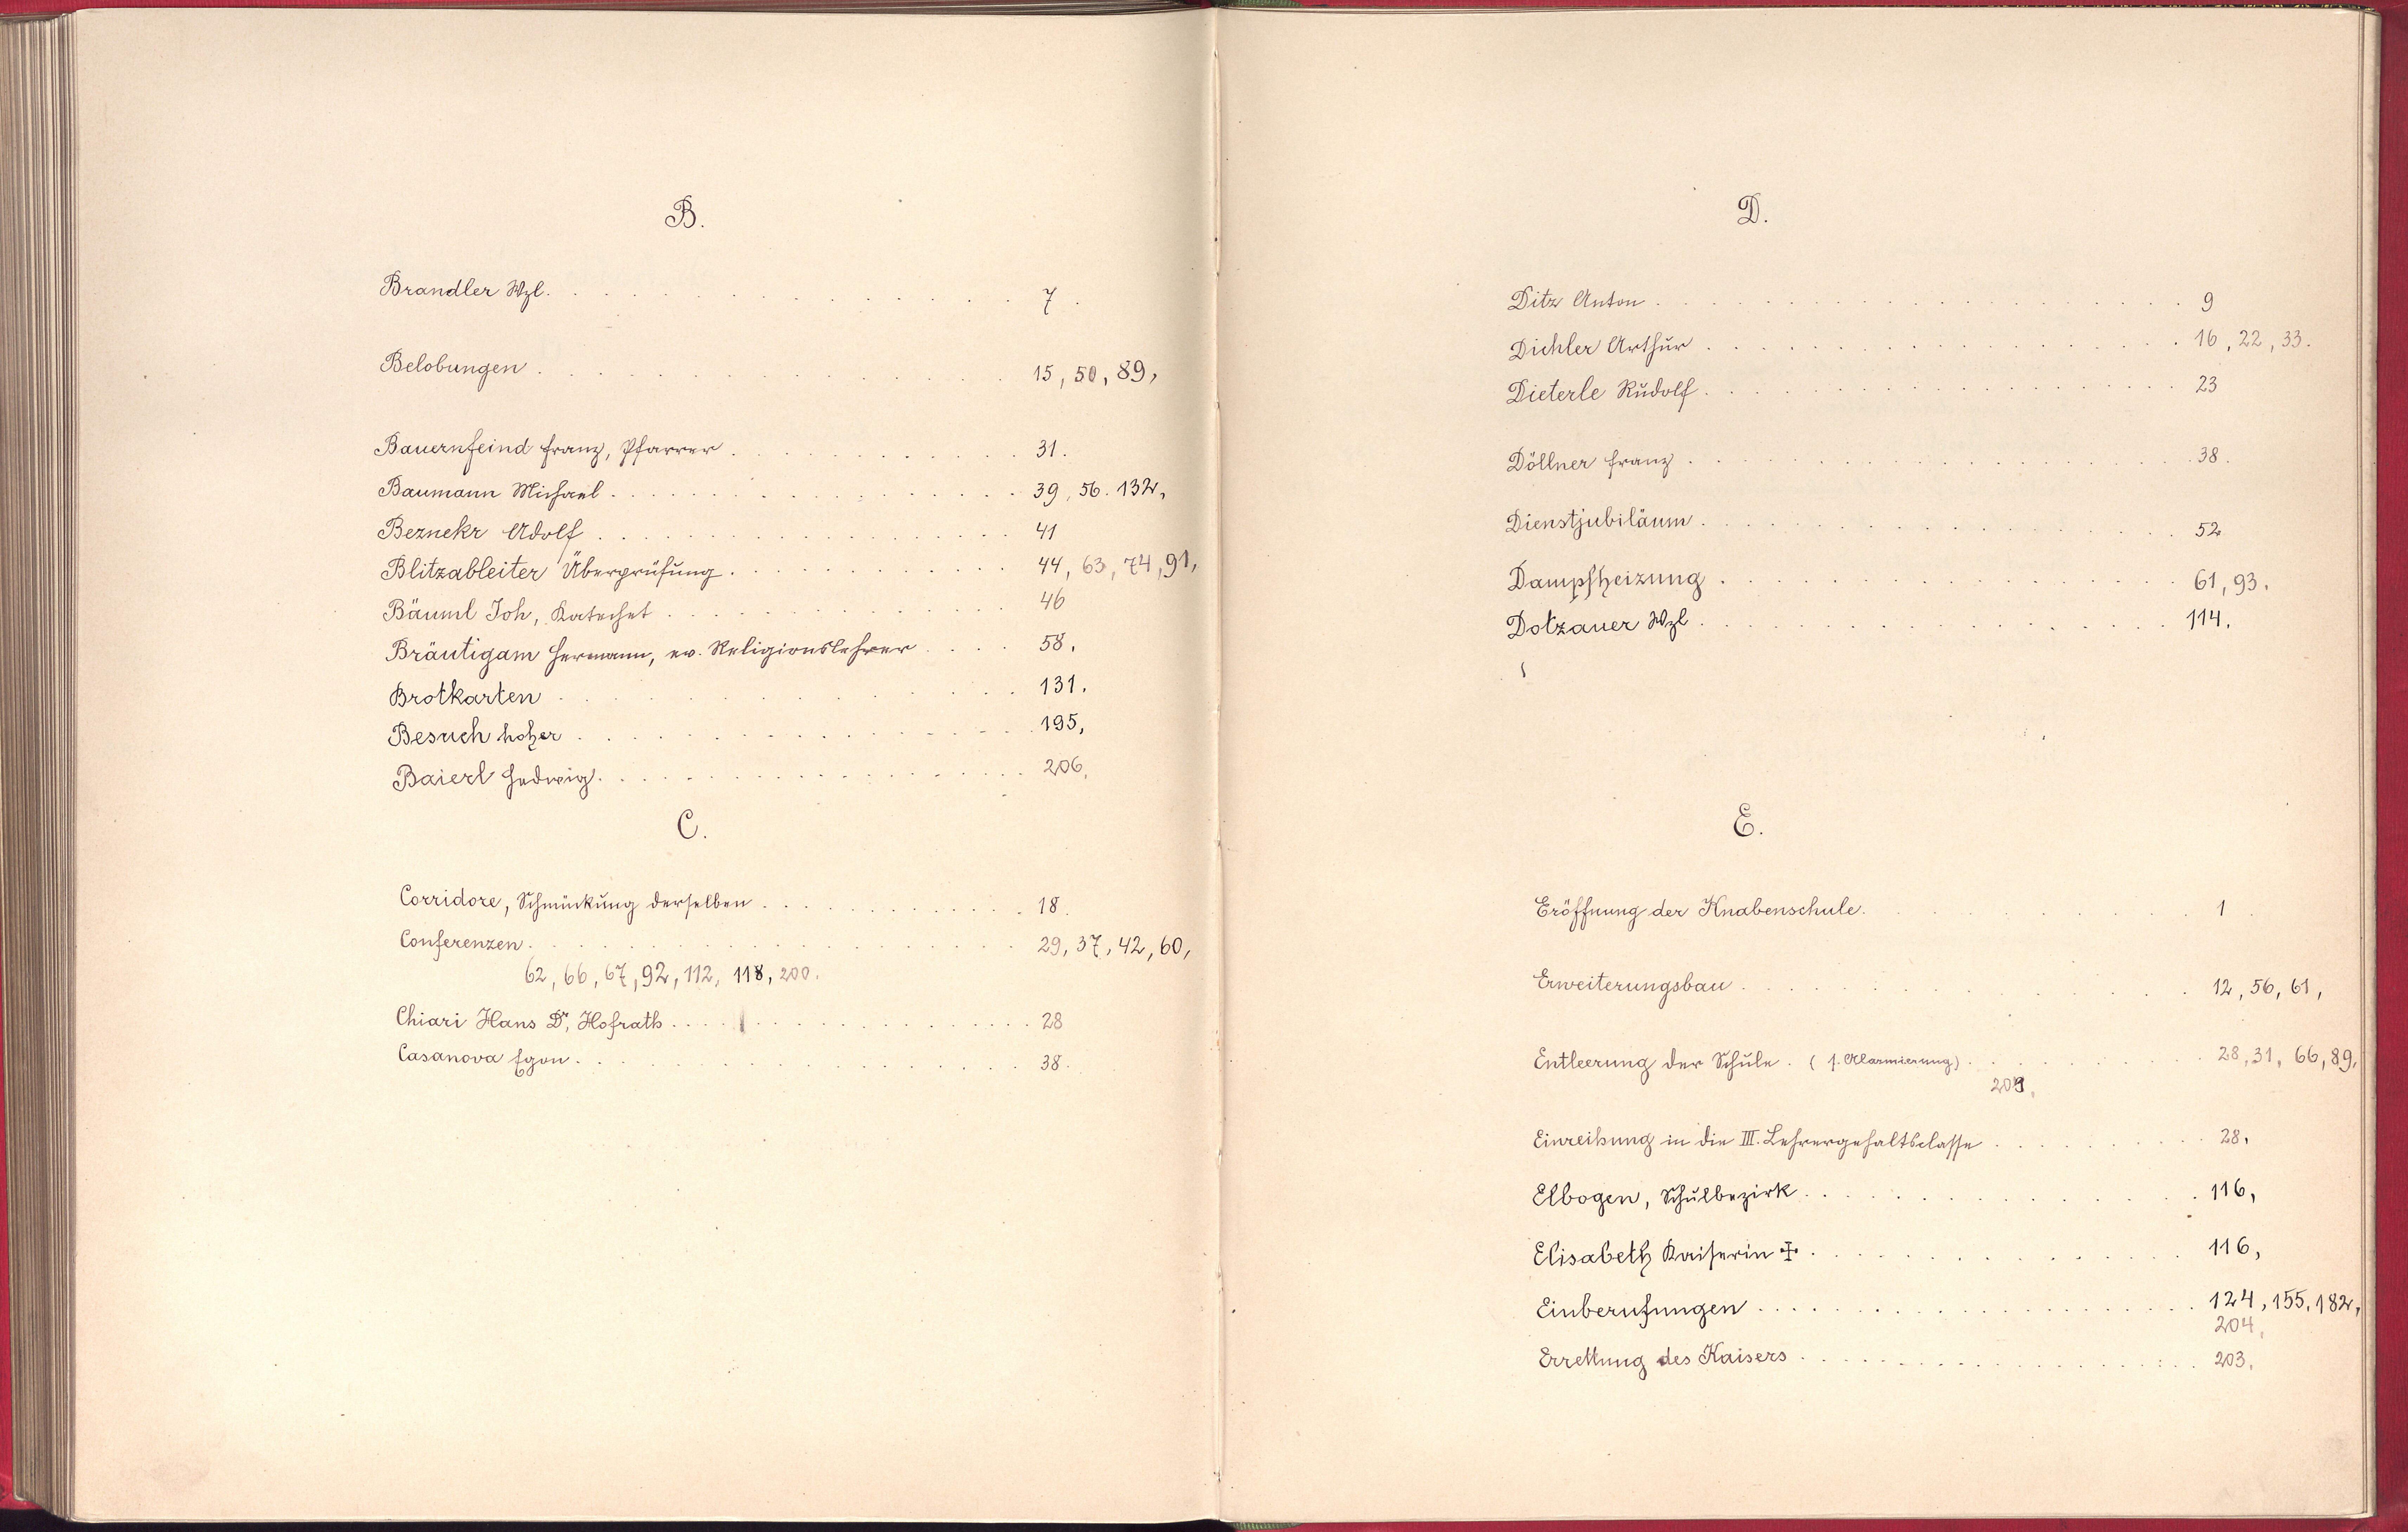 B.
Brandler Wzl. . . . . . . . . . . . . . . . . . 7.
Belobungen . . . . . . . . . . . . . . . . . . 15, 50, 89,
Bauernfeind Franz, Pfarrer . . . . . . . . . . . . 31.
Baumann Michael . . . . . . . . . . . . . . . . 39, 56. 132,
Beznekr Adolf . . . . . . . . . . . . . . . . . 41
Blitzableiter Überprüfung . . . . . . . . . . . . 44, 63, 74, 91,
Bäuml Joh, Katechet . . . . . . . . . . . . . . 46
Bräutigam Hermann, ev. Religionslehrer . . . . 58.
Brotkarten . . . . . . . . . . . . . . . . . . 131.
Besuch hoher . . . . . . . . . . . . . . . . . 195,
Baierl Hedwig . . . . . . . . . . . . . . . . . 206,
C.
Corridore, Schmückung derselben . . . . . . . . . . . 18.
Conferenzen . . . . . . . . . . . . . . . . . . 29, 37, 42, 60,
62, 66, 67, 92, 112, 118, 200.
Chiari Hans Dr, Hofrath . . . . . . . . . . . . . . 28
Casanova Egon . . . . . . . . . . . . . . . . . 38.
D.
Ditz Anton . . . . . . . . . . . . . . . . . . 9
Dichler Arthur . . . . . . . . . . . . . . . . . 16, 22, 33.
Dieterle Rudolf . . . . . . . . . . . . . . . . . 23
Döllner Franz . . . . . . . . . . . . . . . . . 38.
Dienstjubiläum . . . . . . . . . . . . . . . . . 52
Dampfheizung . . . . . . . . . . . . . . . . . 61, 93.
Dotzauer Wzl . . . . . . . . . . . . . . . . . 114.
E.
Eröffnung der Knabenschule . . . . . . . . . . . . 1.
Erweiterungsbau . . . . . . . . . . . . . . . . 12, 56, 61,
Entleerung der Schule. (s. Alarmierung) . . . . . . . . 28, 31, 66, 89,
209,
Einreihung in die III. Lehrergehaltsclasse . . . . . . . . 28,
Elbogen, Schulbezirk . . . . . . . . . . . . . . 116,
Elisabeth Kaiserin ✠ . . . . . . . . . . . . . . 116,
Einberufungen . . . . . . . . . . . . . . . . . 124, 155, 182,
204,
Errettung des Kaisers . . . . . . . . . . . . . . . 203,